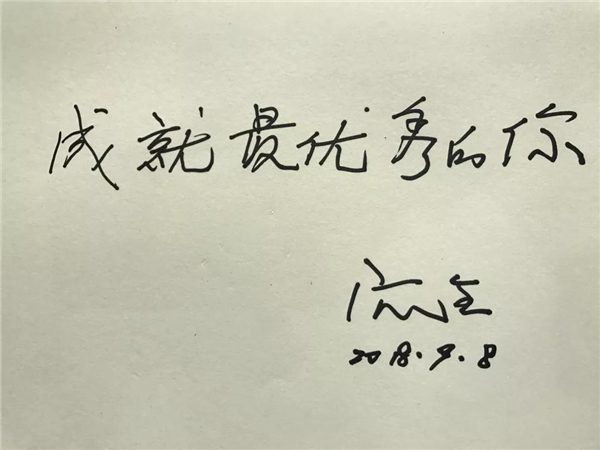 成就最优秀的你
2018.9.8